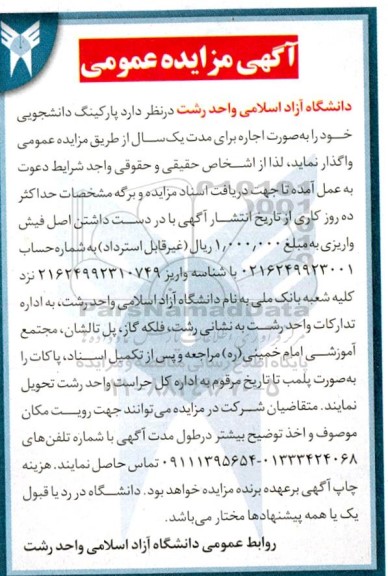 آگهی مزایده عمومی
دانشگاه آزاد اسلامی واحد رشت درنظر دارد پارکینگ دانشجویی
خود را به‌صورت اجاره برای مدت یک‌سال از طریق مزایده عمومی
واگذار نماید، لذا از اشخاص حقیقی و حقوقی واجد شرایط دعوت
به عمل آمده تا جهت دریافت اسناد مزایده و برگه مشخصات حداکثر
ده روز کاری از تاریخ انتشار آگهی با در دست داشتن اصل فیش
واریزی به مبلغ ۱,۰۰۰,۰۰۰ ریال (غیرقابل استرداد) به شماره حساب
۰۲۱۶۲۴۹۹۲۳۰۰۱ با شناسه واریز ۲۱۶۲۴۹۹۲۳۱۰۷۴۹ نزد
کلیه شعبه بانک ملی به نام دانشگاه آزاد اسلامی واحد رشت، به اداره
تدارکات واحد رشت به نشانی رشت، فلکه گاز، پل تالشان، مجتمع
آموزشی امام خمینی (ره) مراجعه و پس از تکمیل اسناد، پاکات را
به‌صورت پلمب تا تاریخ مرقوم به اداره کل حراست واحد رشت تحویل
نمایند. متقاضیان شرکت در مزایده می‌توانند جهت رویت مکان
موصوف و اخذ توضیح بیشتر درطول مدت آگهی با شماره تلفن‌های
۰۱۳۳۳۴۲۴۰۶۸-۰۹۱۱۱۳۹۵۶۵۴ تماس حاصل نمایند. هزینه
چاپ آگهی برعهده برنده مزایده خواهد بود. دانشگاه در رد یا قبول
یک یا همه پیشنهادها مختار می‌باشد.
روابط عمومی دانشگاه آزاد اسلامی واحد رشت
ParsNamadData